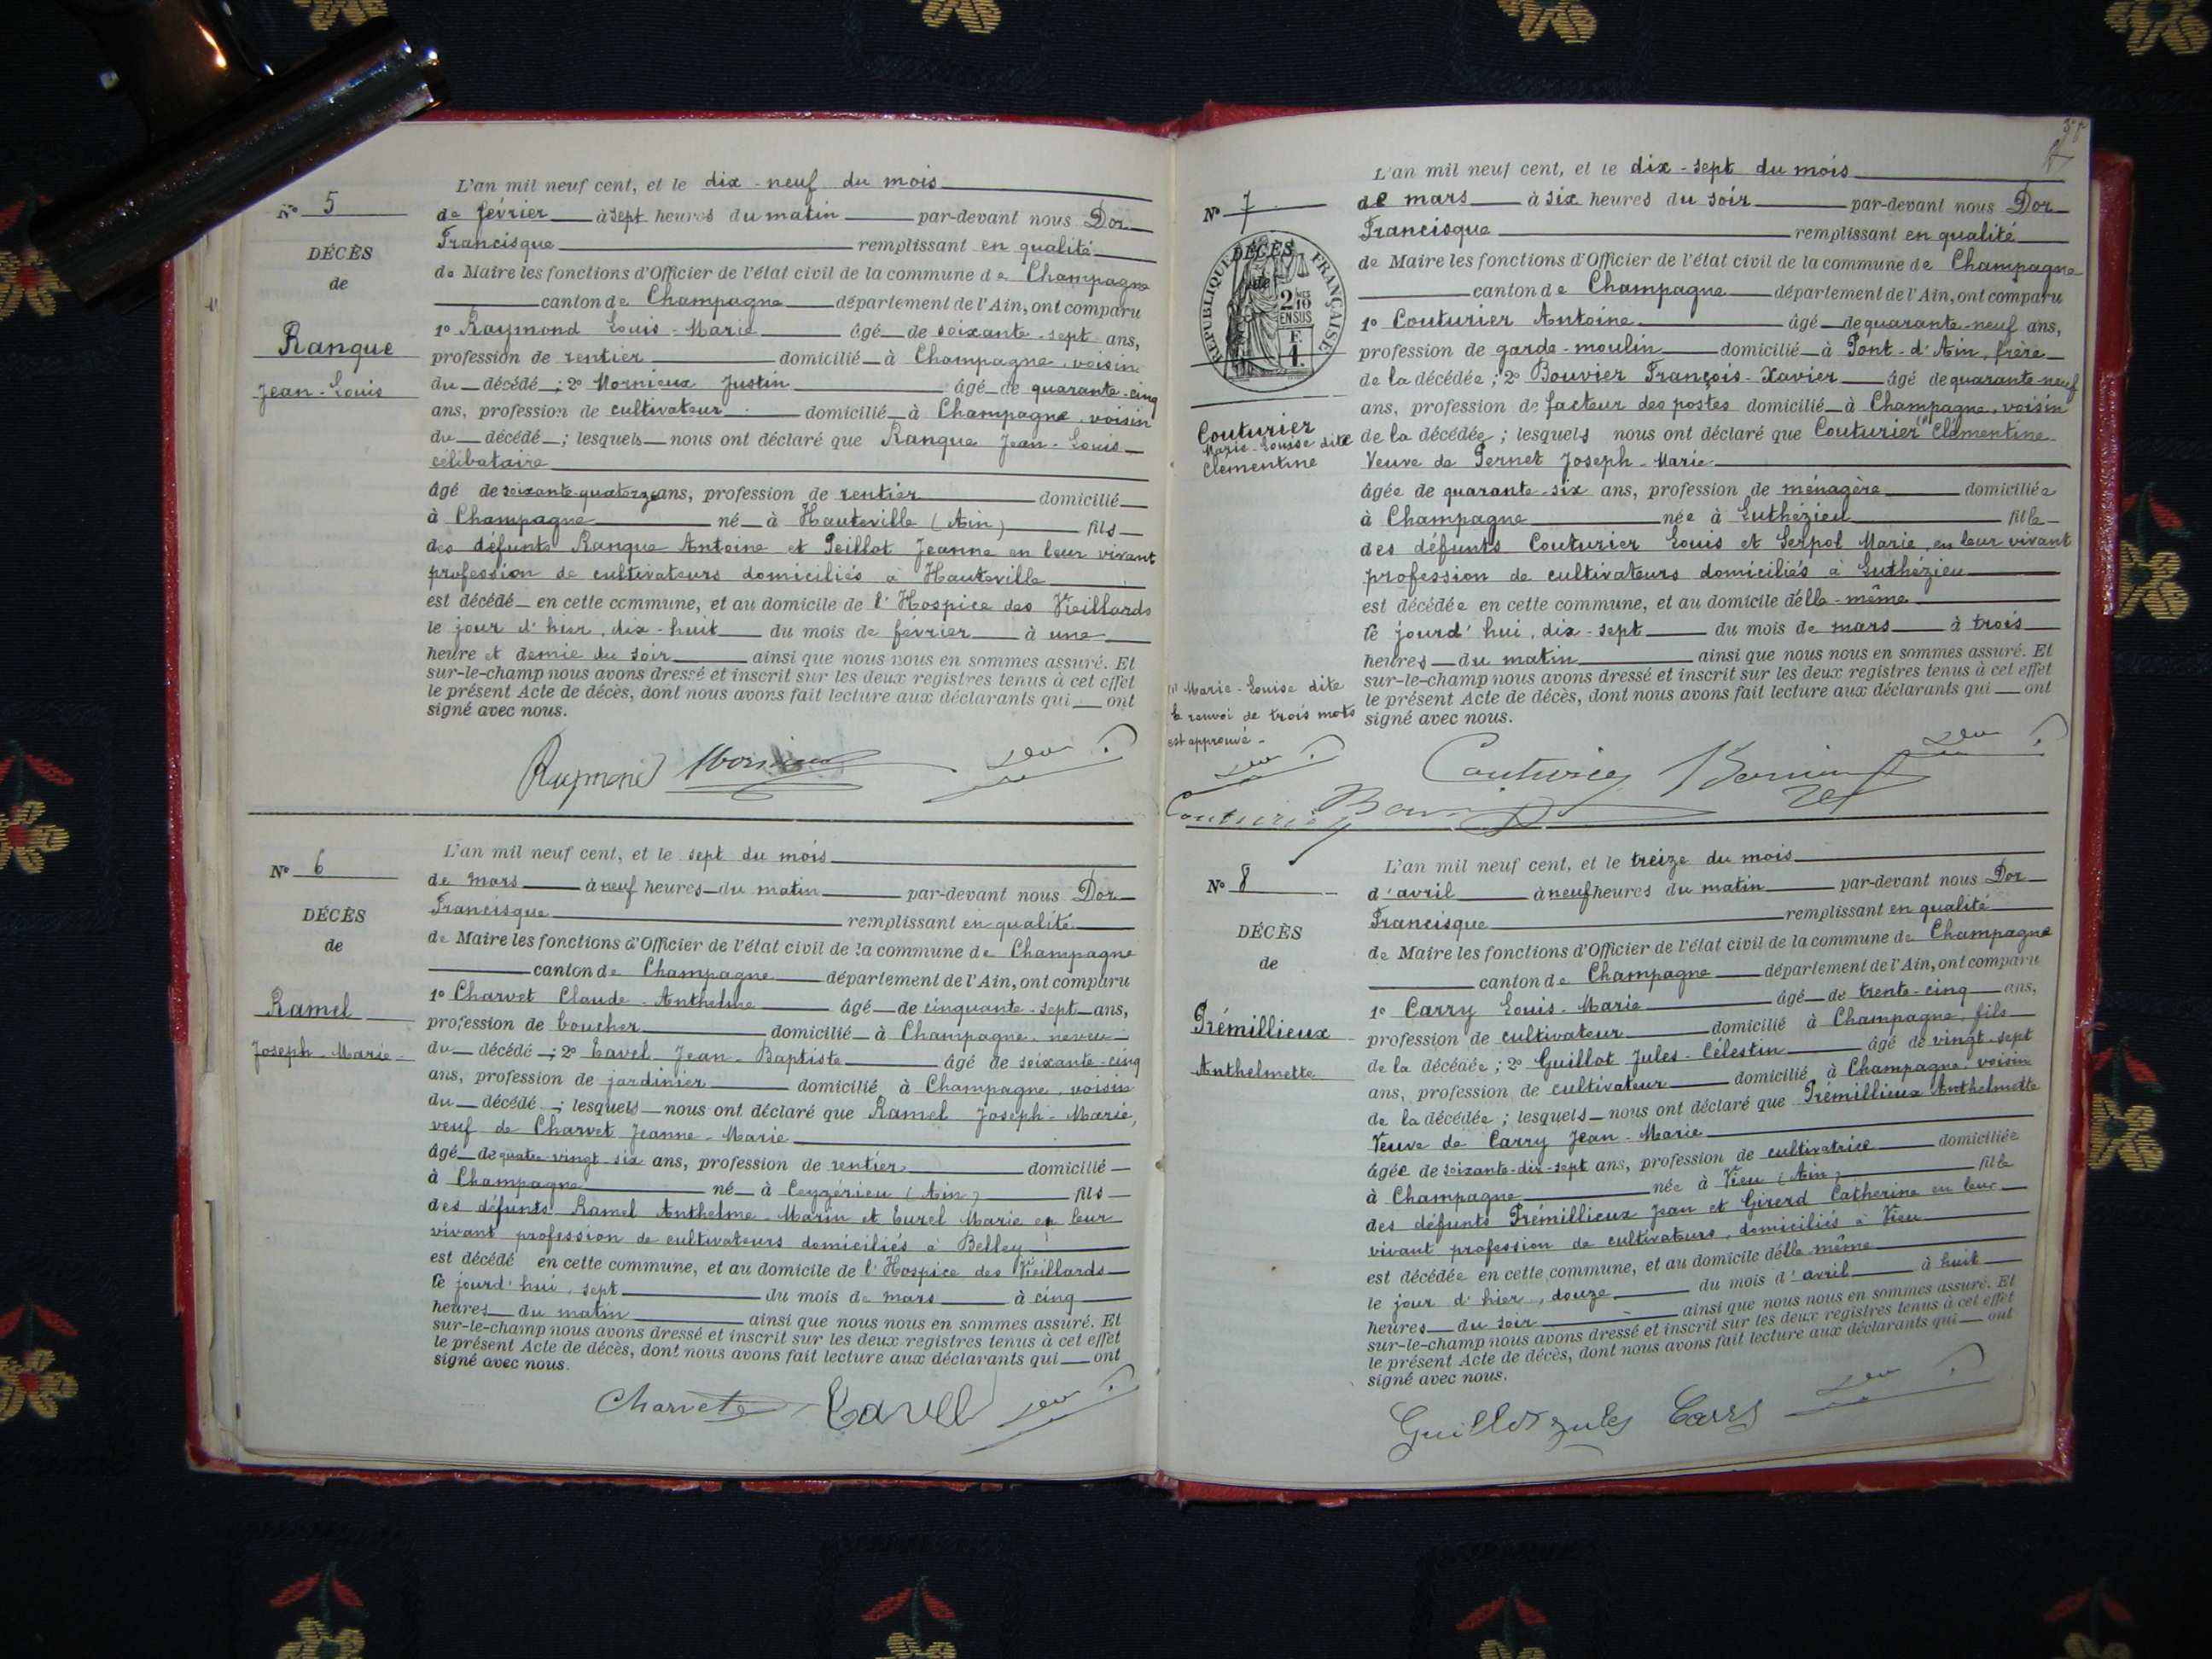 N° 5
DÉCÈS
de
Ranque
Jean-Louis
L'an mil neuf cent, et le dix-neuf du mois
de février à sept heures du matin par-devant nous Dor
Francisque remplissant en qualité
de Maire les fonctions d'Officier de l'état civil de la commune de Champagne
canton de Champagne département de l'Ain, ont comparu
1° Raymond Louis-Marie âgé de soixante-sept ans,
profession de rentier domicilié à Champagne, voisin
du décédé ; 2° Mornieux Justin âgé de quarante-cinq
ans, profession de cultivateur domicilié à Champagne, voisin
du décédé ; lesquels nous ont déclaré que Ranque Jean-Louis
célibataire
âgé de soixante-quatorze ans, profession de rentier domicilié
à Champagne né à Hauteville (Ain) fils
des défunts Ranque Antoine et Peillot Jeanne en leur vivant
profession de cultivateurs domiciliés à Hauteville
est décédé en cette commune, et au domicile de l'Hospice des Vieillards
le jour d'hier, dix-huit du mois de février à une
heure et demie du soir ainsi que nous nous en sommes assuré. Et
sur-le-champ nous avons dressé et inscrit sur les deux registres tenus à cet effet
le présent Acte de décès, dont nous avons fait lecture aux déclarants qui ont
signé avec nous.
Raymond
N° 6
DÉCÈS
de
Ramel
Joseph-Marie
L'an mil neuf cent, et le sept du mois
de mars à neuf heures du matin par-devant nous Dor
Francisque remplissant en qualité
de Maire les fonctions d'Officier de l'état civil de la commune de Champagne
canton de Champagne département de l'Ain, ont comparu
1° Charvet Claude-Anthelme âgé de cinquante-sept ans,
profession de boucher domicilié à Champagne, neveu
du décédé ; 2° Tavel Jean-Baptiste âgé de soixante-cinq
ans, profession de jardinier domicilié à Champagne, voisin
du décédé ; lesquels nous ont déclaré que Ramel Joseph-Marie,
veuf de Charvet Jeanne-Marie
âgé de quatre-vingt-six ans, profession de rentier domicilié
à Champagne né à Ceyzérieu (Ain) fils
des défunts Ramel Anthelme-Marin et Eurel Marie en leur
vivant profession de cultivateurs domiciliés à Belley
est décédé en cette commune, et au domicile de l'Hospice des Vieillards
le jourd'hui, sept du mois de mars à cinq
heures du matin ainsi que nous nous en sommes assuré. Et
sur-le-champ nous avons dressé et inscrit sur les deux registres tenus à cet effet
le présent Acte de décès, dont nous avons fait lecture aux déclarants qui ont
signé avec nous.
Charvet Tavel
N° 7
DÉCÈS
de
RÉPUBLIQUE FRANÇAISE
2/10 EN SUS
Couturier
Marie-Louise dite
Clémentine
L'an mil neuf cent, et le dix-sept du mois
de mars à six heures du soir par-devant nous Dor
Francisque remplissant en qualité
de Maire les fonctions d'Officier de l'état civil de la commune de Champagne
canton de Champagne département de l'Ain, ont comparu
1° Couturier Antoine âgé de quarante-neuf ans,
profession de garde-moulin domicilié à Pont-d'Ain, frère
de la décédée ; 2° Bouvier François-Xavier âgé de quarante-neuf
ans, profession de facteur des postes domicilié à Champagne, voisin
de la décédée ; lesquels nous ont déclaré que Couturier (1) Clémentine
Veuve de Pernet Joseph-Marie
âgée de quarante-six ans, profession de ménagère domiciliée
à Champagne née à Luthézieu fille
des défunts Couturier Louis et Serpol Marie, en leur vivant
profession de cultivateurs domiciliés à Luthézieu
est décédée en cette commune, et au domicile d'elle-même
le jourd'hui, dix-sept du mois de mars à trois
heures du matin ainsi que nous nous en sommes assuré. Et
sur-le-champ nous avons dressé et inscrit sur les deux registres tenus à cet effet
le présent Acte de décès, dont nous avons fait lecture aux déclarants qui ont
signé avec nous.
(1) Marie-Louise dite
le renvoi de trois mots
est approuvé
Couturier Bouvier
Couturier Bouvier
N° 8
DÉCÈS
de
Prémillieux
Anthelmette
L'an mil neuf cent, et le treize du mois
d'avril à neuf heures du matin par-devant nous Dor
Francisque remplissant en qualité
de Maire les fonctions d'Officier de l'état civil de la commune de Champagne
canton de Champagne département de l'Ain, ont comparu
1° Carry Louis-Marie âgé de trente-cinq ans,
profession de cultivateur domicilié à Champagne, fils
de la décédée ; 2° Guillot Jules-Célestin âgé de vingt-sept
ans, profession de cultivateur domicilié à Champagne, voisin
de la décédée ; lesquels nous ont déclaré que Prémillieux Anthelmette
Veuve de Carry Jean-Marie
âgée de soixante-dix-sept ans, profession de cultivatrice domiciliée
à Champagne née à Vieu (Ain) fille
des défunts Prémillieux Jean et Girerd Catherine en leur
vivant profession de cultivateurs, domiciliés à Vieu
est décédée en cette commune, et au domicile d'elle même
le jour d'hier, douze du mois d'avril à huit
heures du soir ainsi que nous nous en sommes assuré. Et
sur-le-champ nous avons dressé et inscrit sur les deux registres tenus à cet effet
le présent Acte de décès, dont nous avons fait lecture aux déclarants qui ont
signé avec nous.
Guillot Jules Carry